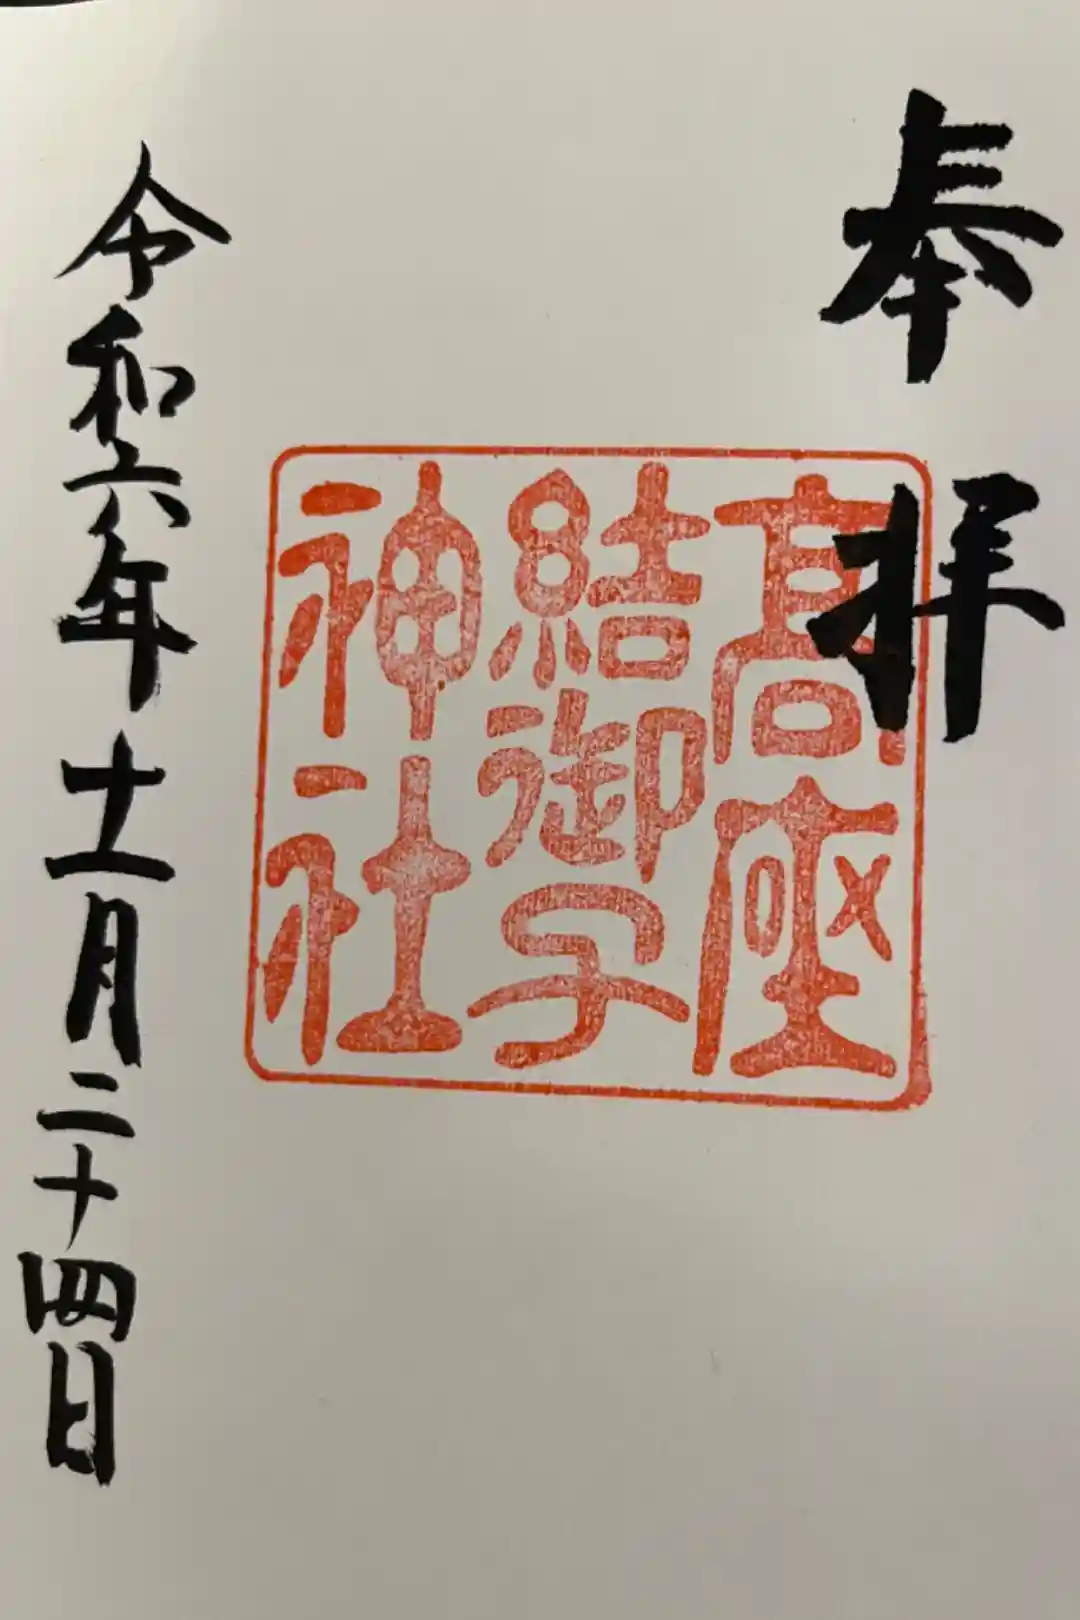 奉拝
高座
結御子
神社
令和六年十一月二十四日